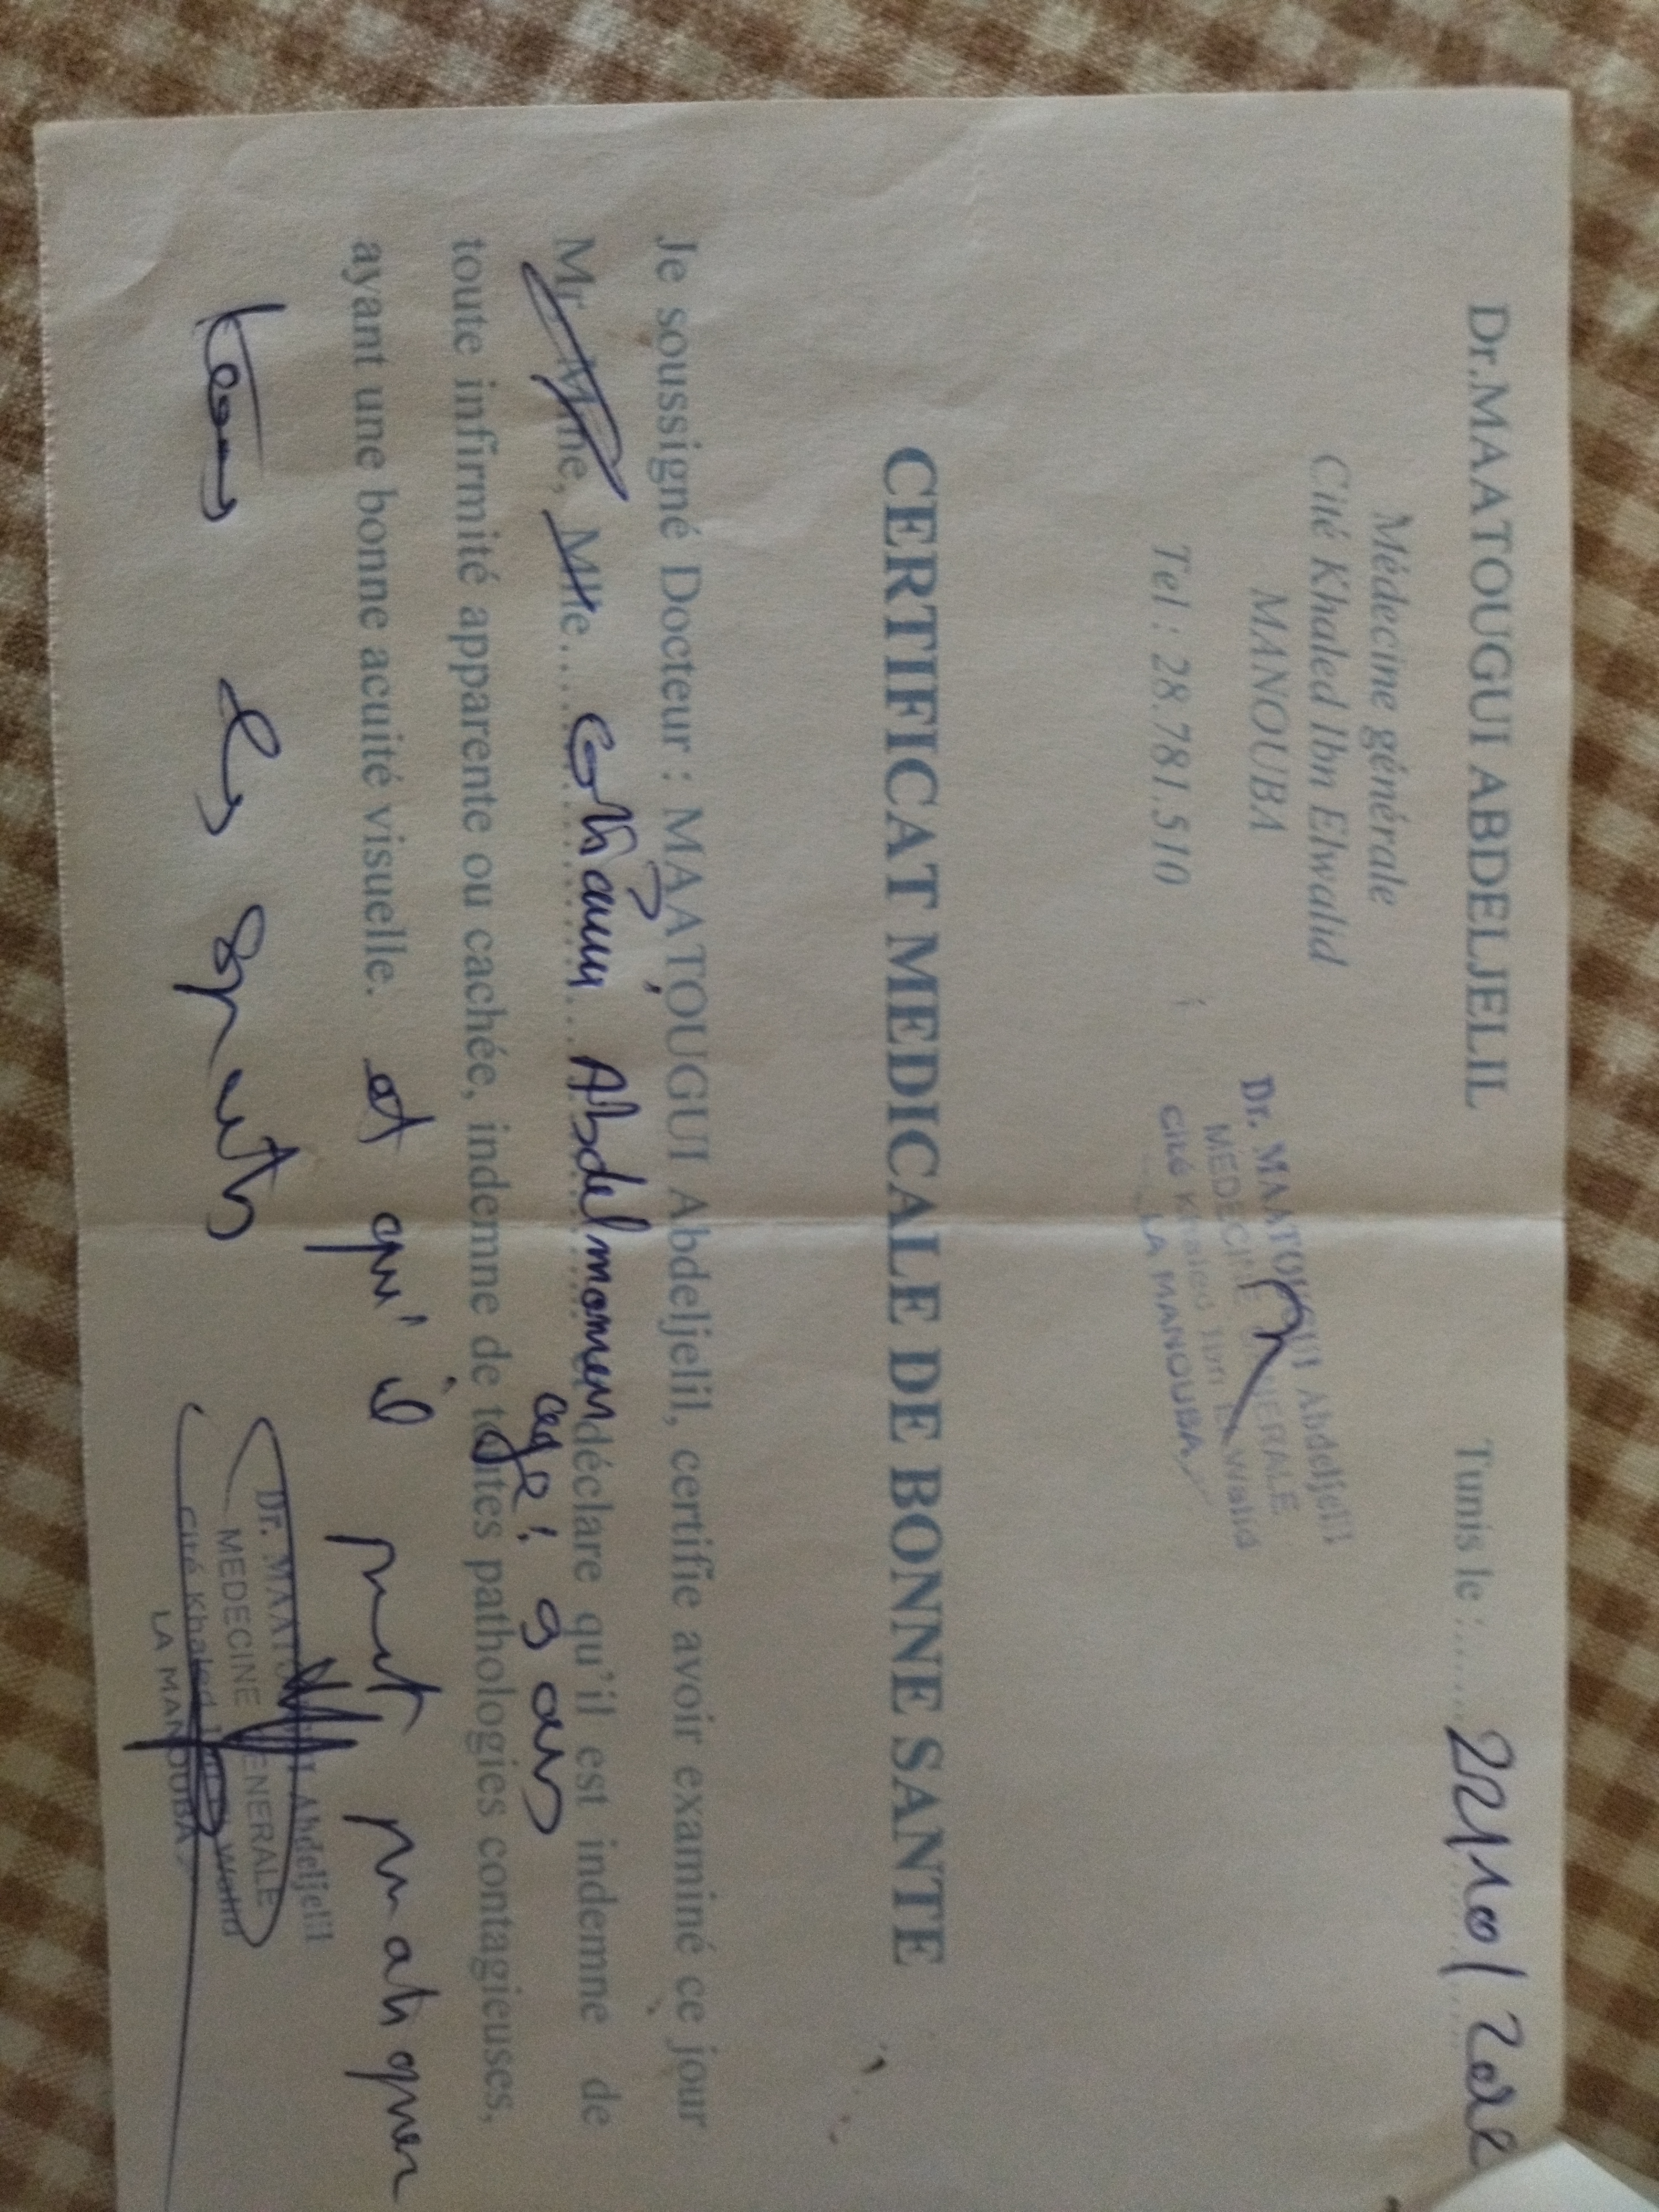 Dr.MAATOUGUI ABDELJELIL
Tunis le :........ 22/10/202
Médecine générale
Cité Khaled Ibn Elwalid
MANOUBA
Tel : 28.781.510
Dr. MAATOUGUI Abdeljelil
MEDECINE GENERALE
Cité Khaled Ibn El Walid
LA MANOUBA
CERTIFICAT MEDICALE DE BONNE SANTE
Je soussigné Docteur : MAATOUGUI Abdeljelil, certifie avoir examiné ce jour
Mr, Mme, Mlle.... Abdelmomen déclare qu'il est indemne de
age : 9 ans
toute infirmité apparente ou cachée, indemne de toutes pathologies contagieuses,
ayant une bonne acuité visuelle. et qu'il peut pratiquer
tous les sports
Dr. MAATOUGUI Abdeljelil
MEDECINE GENERALE
Cité Khaled Ibn El Walid
LA MANOUBA